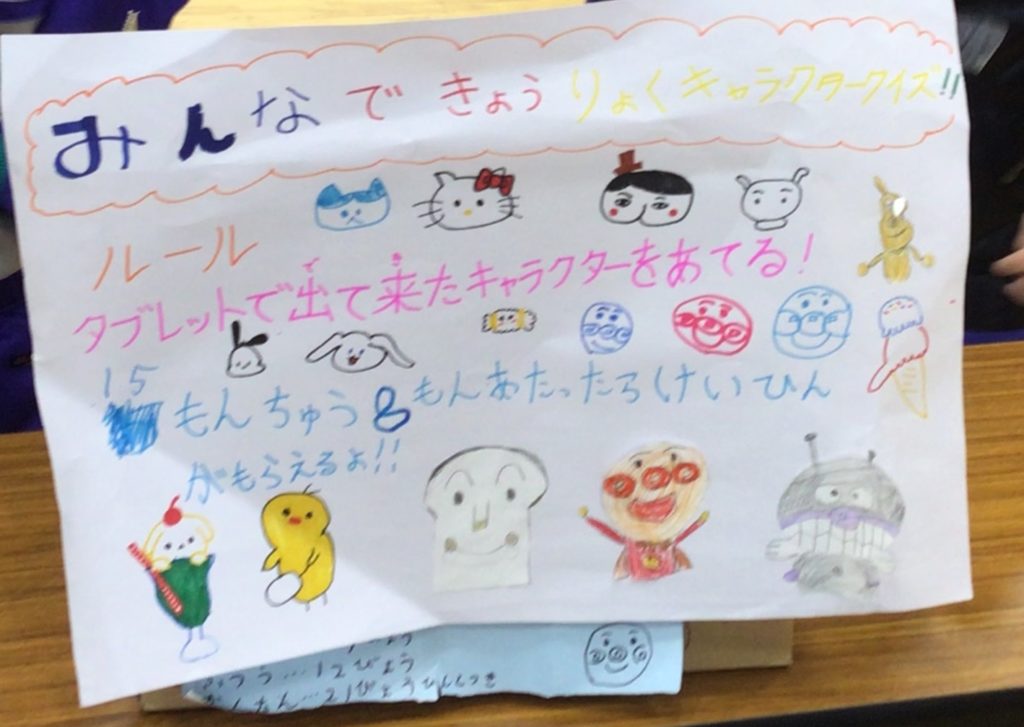 みんなできょうりょくキャラクタークイズ!!
ルール
タブレットで出て来たキャラクターをあてる!
15もんちゅう8もんあたったらけいひん
がもらえるよ!!
ふつう…12びょう